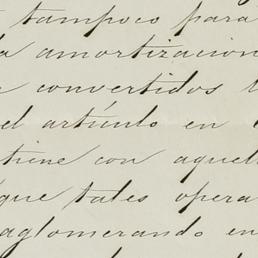 tampoco para
la amortizacion
convertidos
el artículo en
tiene con aquell
que tales opera
aglomerando en